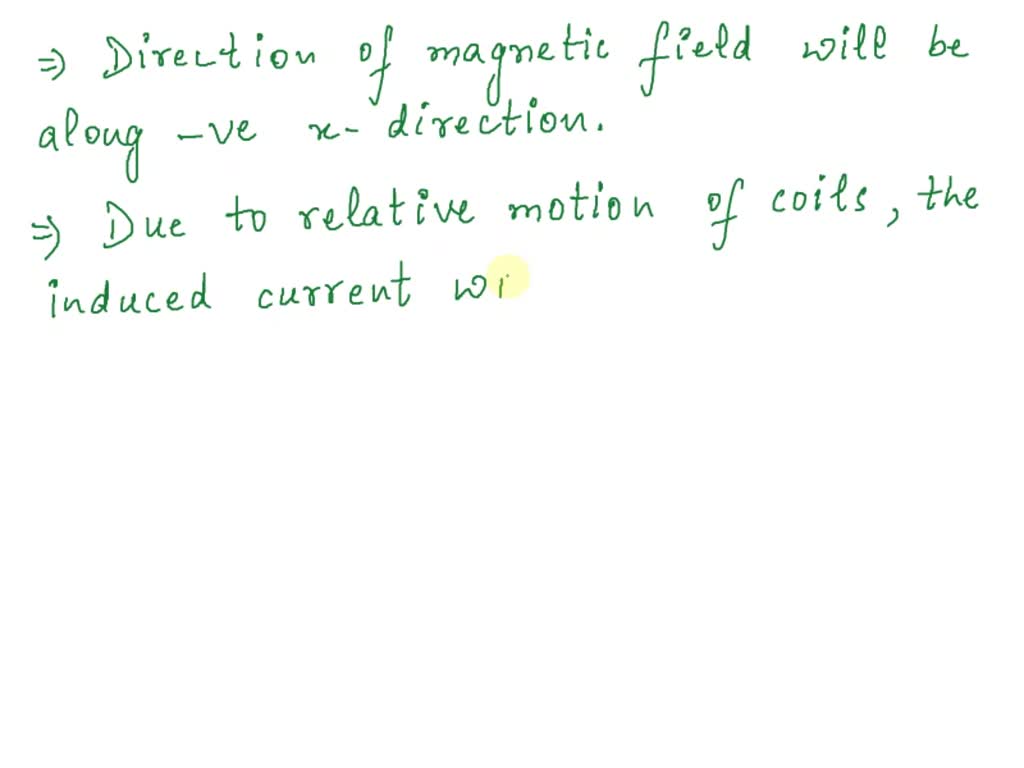 ⇒ Direction of magnetic field will be
along -ve x- direction.
⇒ Due to relative motion of coils, the
induced current wi